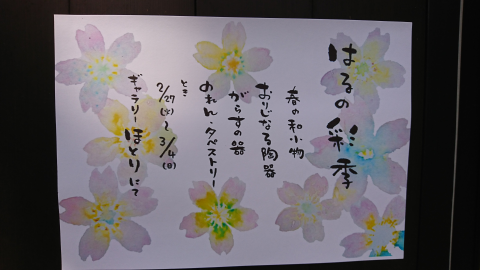 はるの彩季
春の和小物
おりじなる陶器
がらすの器
のれん・タペストリー
とき
2/27(火)〜3/4(日)
ギャラリーほとりにて